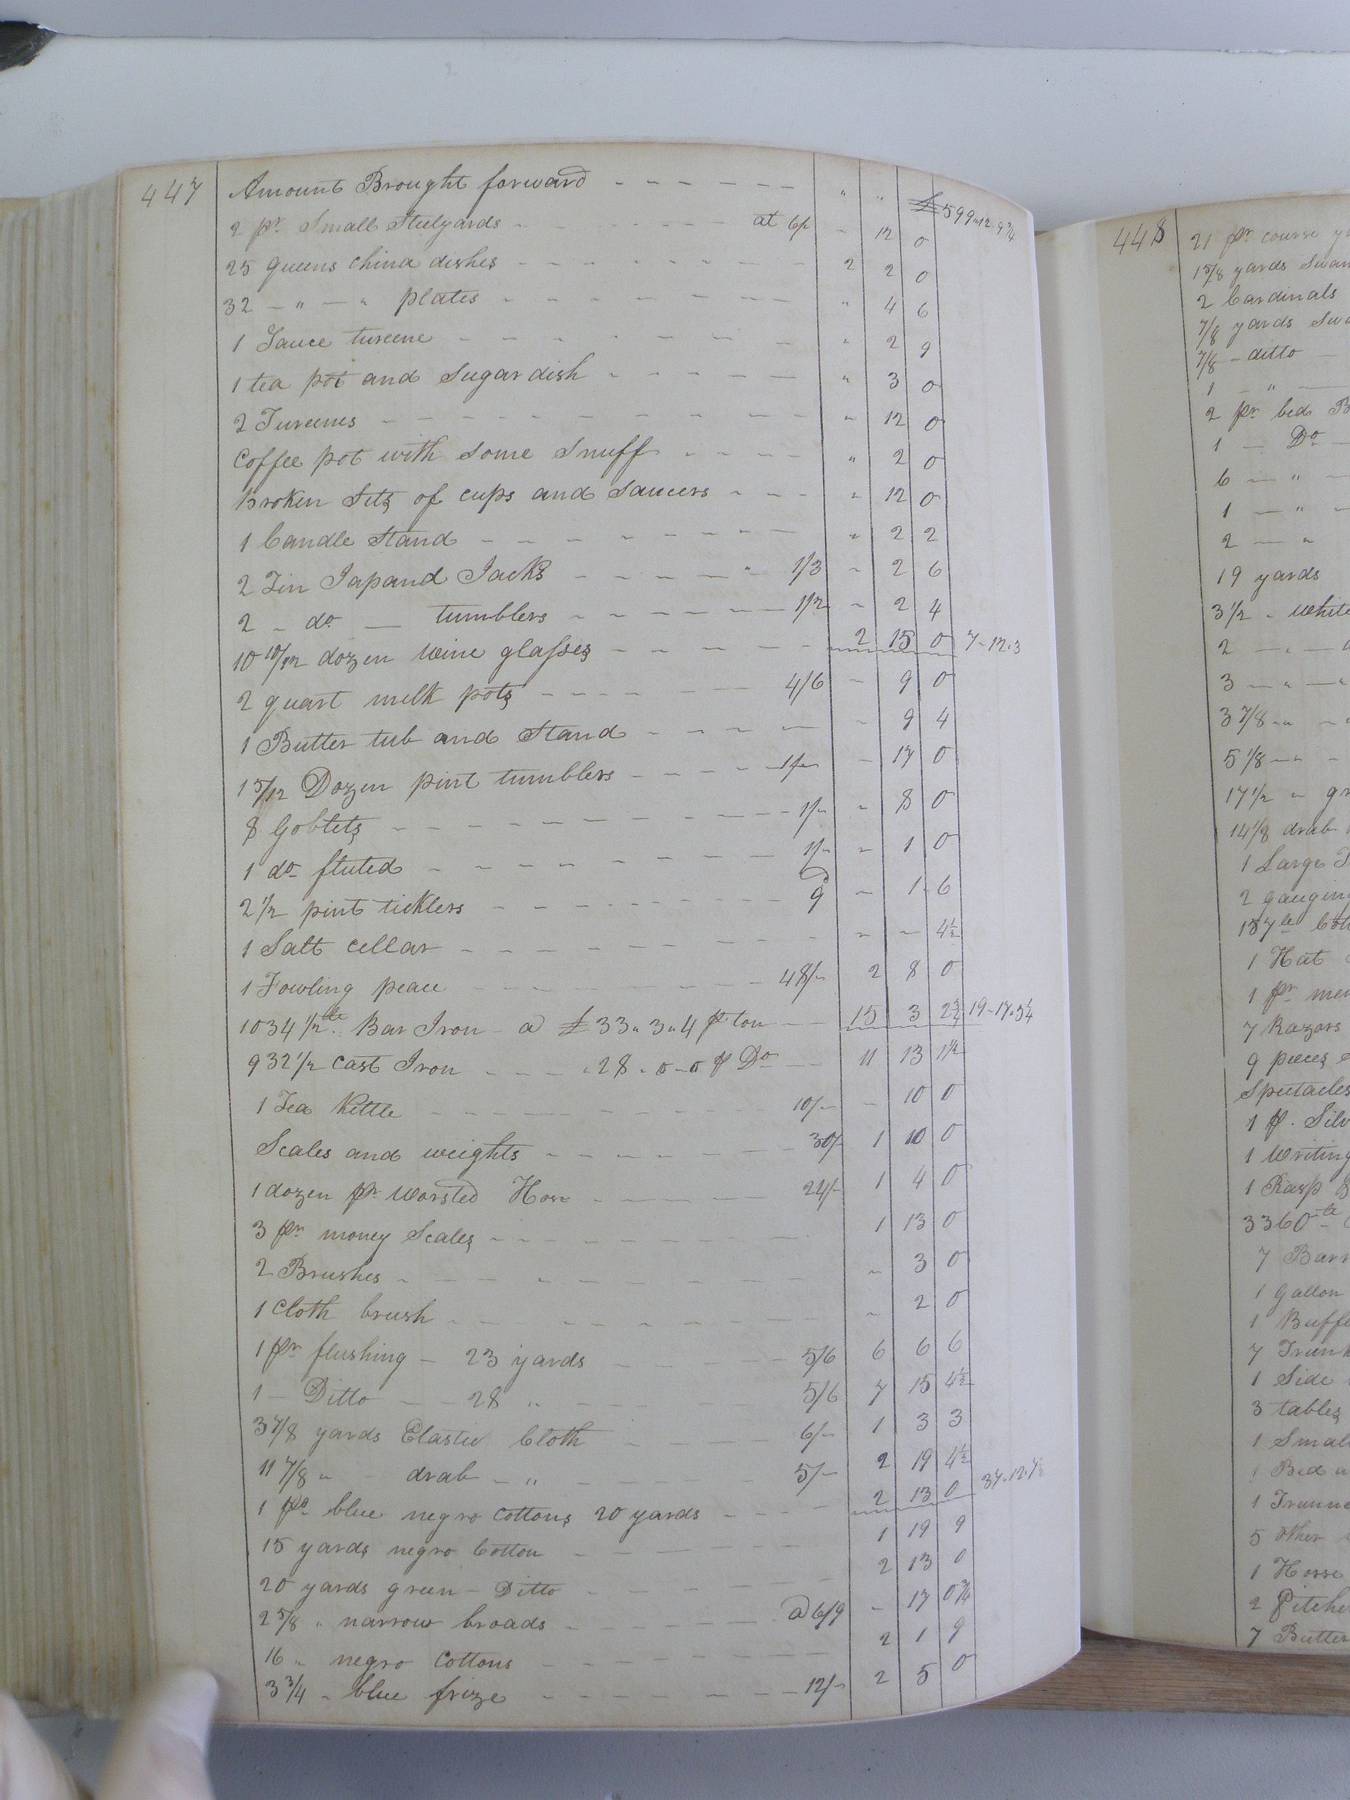 447 Amount Brought forward - - - - - - - " " £599"12"9¾
2 pr. Small Steelyards - - - - - - at 6p - 12 0
25 queens China dishes - - - - - - - - - 2 2 0
32 - " - " plates - - - - - - - - " 4 6
1 Sauce tureene - - - - - - - - " 2 9
1 tea pot and Sugar dish - - - - - - " 3 0
2 Tureenes - - - - - - - - - - - " 12 0
Coffee pot with Some Snuff - - - - - " 2 0
broken Sets of cups and Saucers - - - " 12 0
1 Candle Stand - - - - - - - - " 2 2
2 Tin Japand Jacks - - - - - " 1/3 - 2 6
2 - do - tumblers - - - - - - 1/2 - 2 4
10 10/12 dozen wine glasses - - - - - 2 15 0 7-12-3
2 quart milk pots - - - - - - - 4/6 - 9 0
1 Butter tub and Stand - - - - - - 9 4
1 5/12 Dozen pint tumblers - - - - 1/- - 17 0
8 Goblets - - - - - - - - - - 1/- - 8 0
1 do- fluted - - - - - - - - 1/- - 1 0
2 1/2 pint ticklers - - - - - - - - 9 - 1 6
1 Salt cellar - - - - - - - - - - - 4½
1 Fowling peace - - - - - - - - 48/- 2 8 0
1034 1/2 lb. Bar Iron - @ £33"3"4 pr ton - 15 3 2¾ 19-17-5¼
932 1/2 Cast Iron - - - - 28-0-0 pr Do - - 11 13 1½
1 Tea Kettle - - - - - - - - - 10/- - 10 0
Scales and weights - - - - - - - 30/- 1 10 0
1 dozen pr. worsted Hose - - - - - 24/- 1 4 0
3 pr money Scales - - - - - - - - 1 13 0
2 Brushes - - - - - - - - - - - 3 0
1 Cloth brush - - - - - - - - - - 2 0
1 pr flushing - 23 yards - - - - - 5/6 6 6 6
1 - Ditto - - 28 " - - - - - 5/6 7 15 4½
3 7/8 yards Elastic Cloth - - - - - 6/- 1 3 3
11 7/8 " - drab - " - - - - - 5/- 2 19 4½
1 ps. blue negro Cottons 20 yards - - - - 2 13 0 37-12-7½
15 yards negro Cotton - - - - - - - 1 19 9
20 yards green - Ditto - - - - - - - 2 13 0
2 5/8 " narrow broads - - - - - - @6/9 - 17 0¾
16 " negro Cottons - - - - - - - - 2 1 9
3 3/4 - blue frize - - - - - - - 12/- 2 5 0
448 21 pr course
15/8 yards Swan
2 Cardinals
7/8 yards
7/8 - ditto -
1 - " -
2 pr bed
1 - Do -
6 - " -
1 - " -
2 - "
19 yards
3 1/2 - white
2 - " -
3 - " - "
3 7/8 - " -
5 1/8 - " -
17 1/2 "
14 1/8 drab
1 Large
2 gauging
1 Hat
1 pr
7 Razors
9 pieces
Spectacles
1 pr. Silv
1 Writing
1 Rasp
3360 lb
7 Barr
1 Gallon
1 Buffe
7 Trunk
1 Side
3 tables
1 Small
1 Bed
1
5 other
1 Horse
2 Pitche
7 Butter